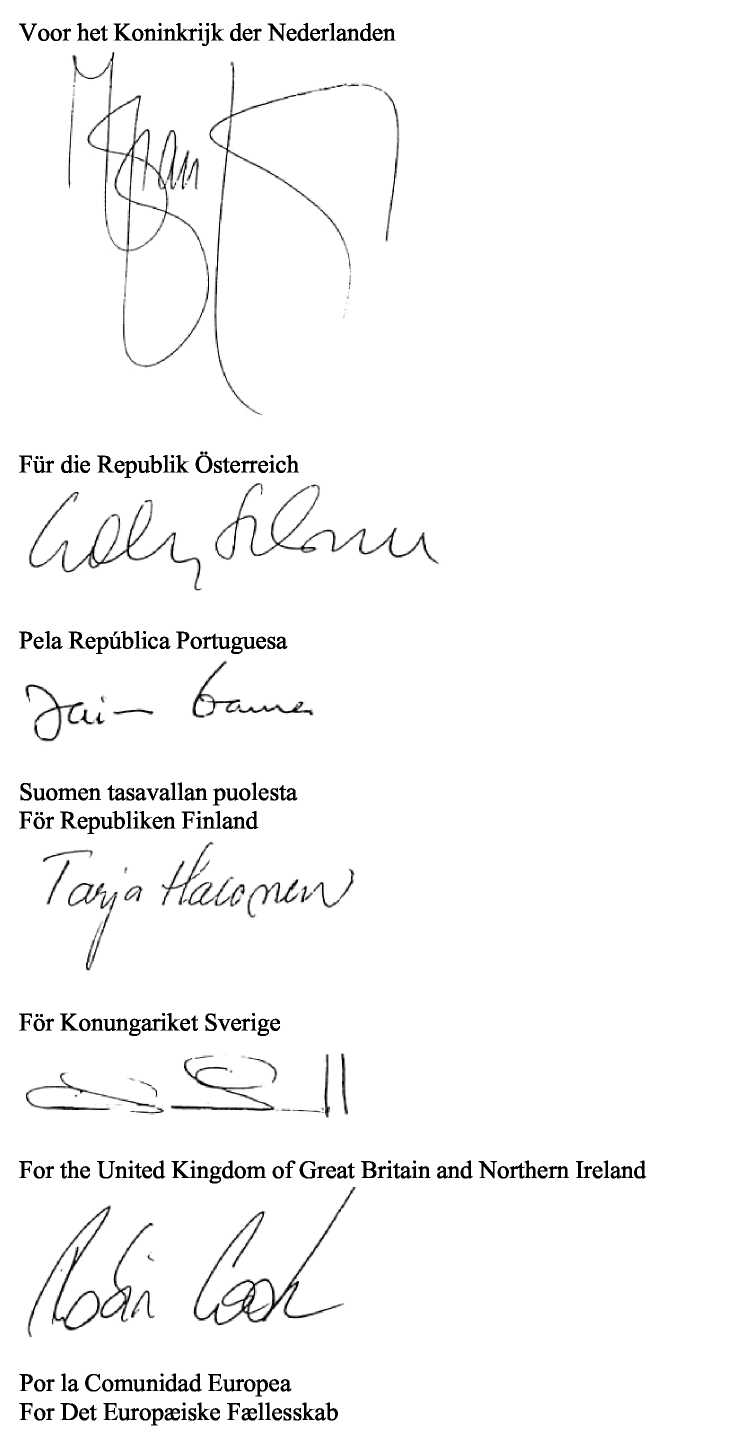 Voor het Koninkrijk der Nederlanden
Für die Republik Österreich
Pela República Portuguesa
Jaime Gama
Suomen tasavallan puolesta
För Republiken Finland
Tarja Halonen
För Konungariket Sverige
For the United Kingdom of Great Britain and Northern Ireland
Robin Cook
Por la Comunidad Europea
For Det Europæiske Fællesskab